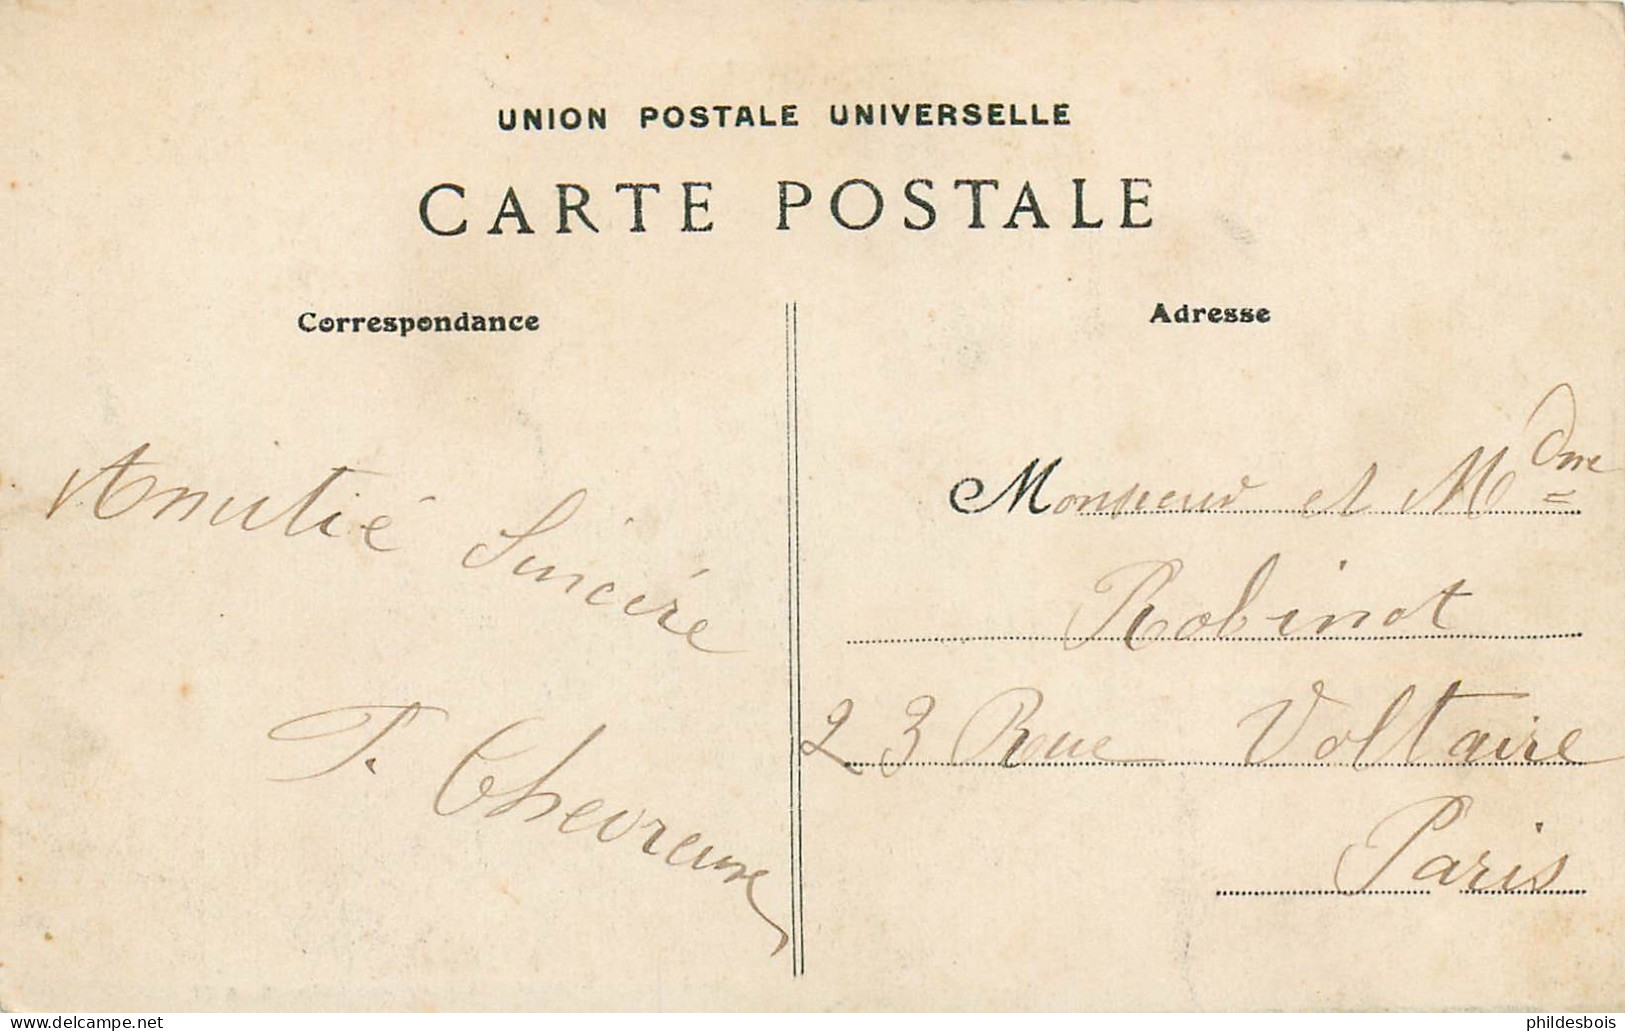 UNION POSTALE UNIVERSELLE
CARTE POSTALE
Correspondance
Adresse
Amitié Sincère
Monsieur et Mdme
Robinot
23 Rue Voltaire
Paris
delcampe.net
phildesbois